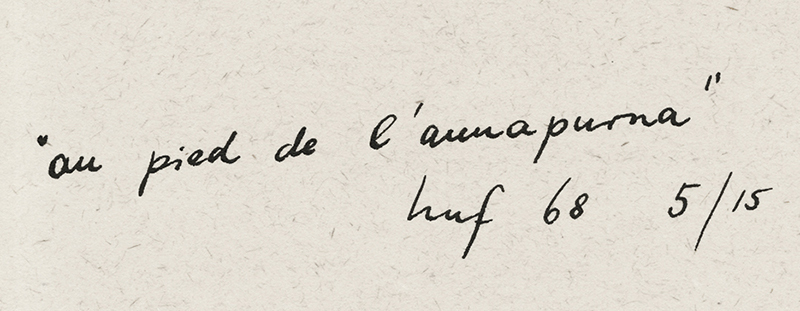 "au pied de l'annapurna"
huf 68 5/15